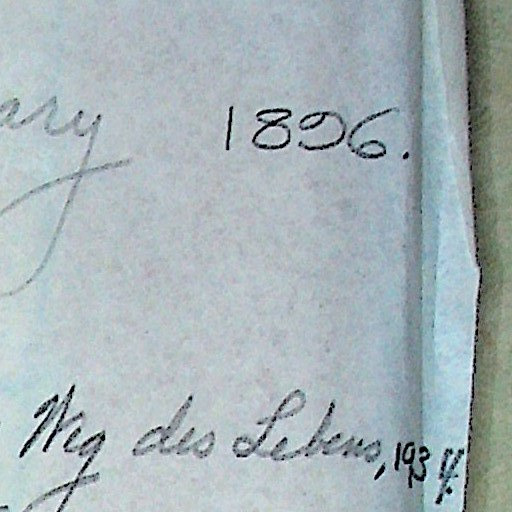 ary 1896.
Weg des Lebens, 1934.